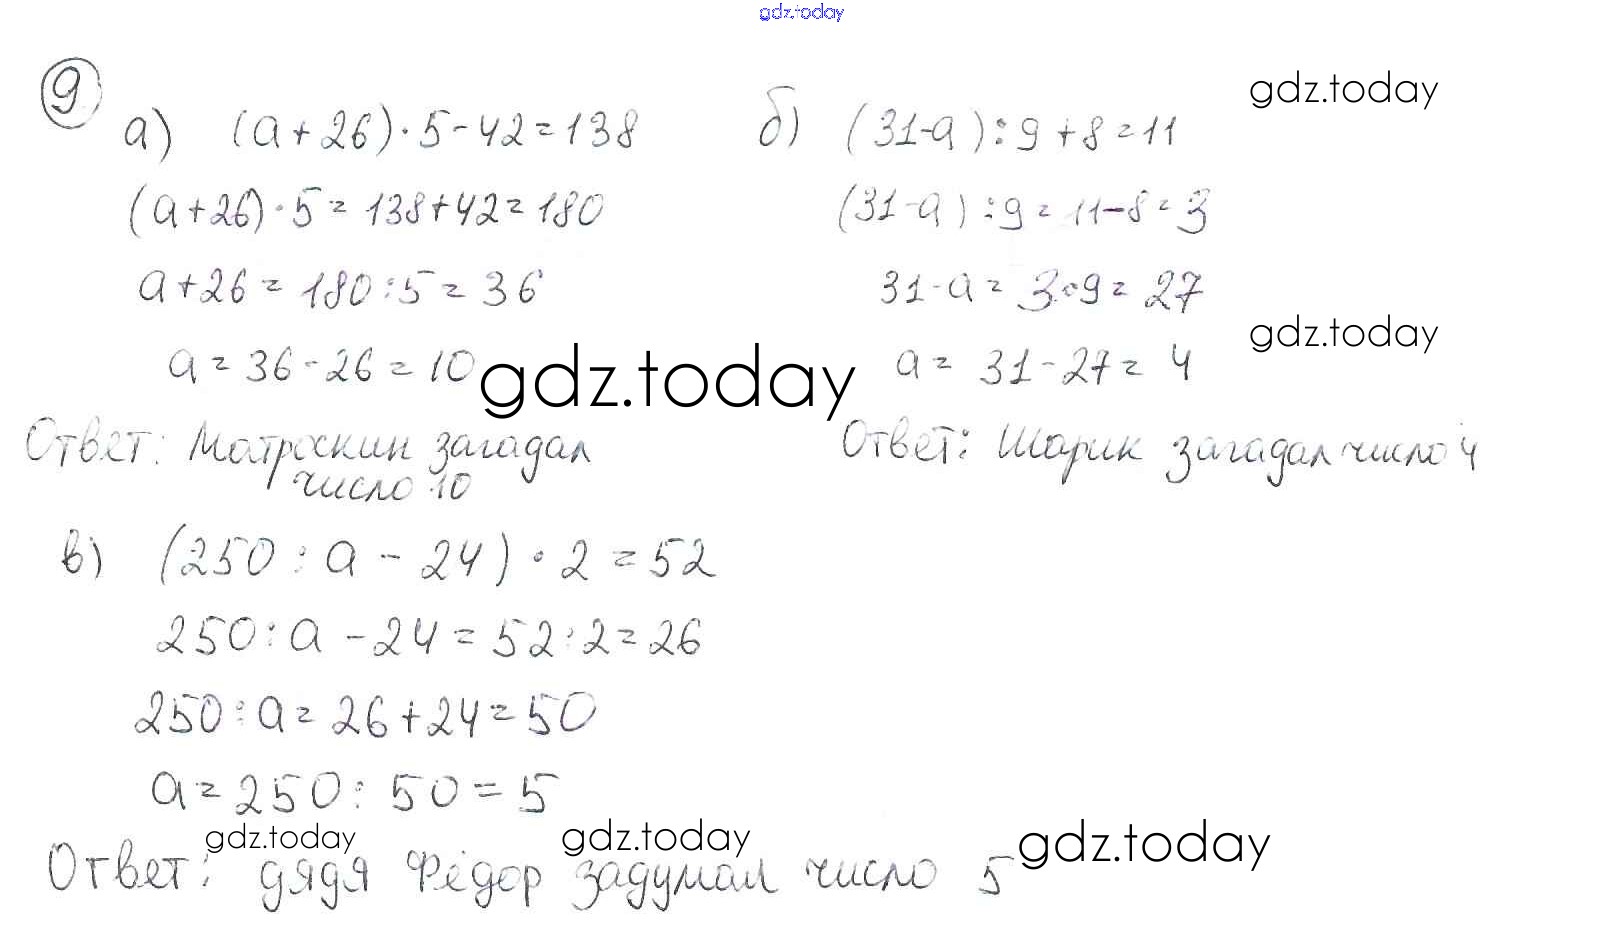 gdz.today
9
а) (a+26)·5-42=138
(a+26)·5=138+42=180
a+26=180:5=36
a=36-26=10
Ответ: Матроскин загадал
число 10
б) (31-a):9+8=11
(31-a):9=11-8=3
31-a=3·9=27
a=31-27=4
Ответ: Шарик загадал число 4
gdz.today
gdz.today
gdz.today
в) (250:a-24)·2=52
250:a-24=52:2=26
250:a=26+24=50
a=250:50=5
Ответ: дядя Фёдор задумал число 5
gdz.today
gdz.today
gdz.today